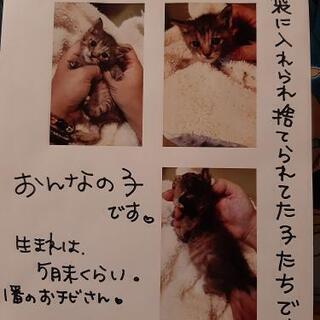 袋に入れられ捨てられてた子たちです
おんなの子
です。
生まれは、
5月末くらい。
1番のおチビさん。